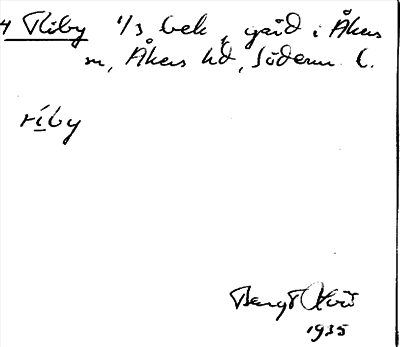 4 Riby 1/3 bek, gård i Åkers
sn, Åkers hd, Söderm l.
ríby
Bengt
1935